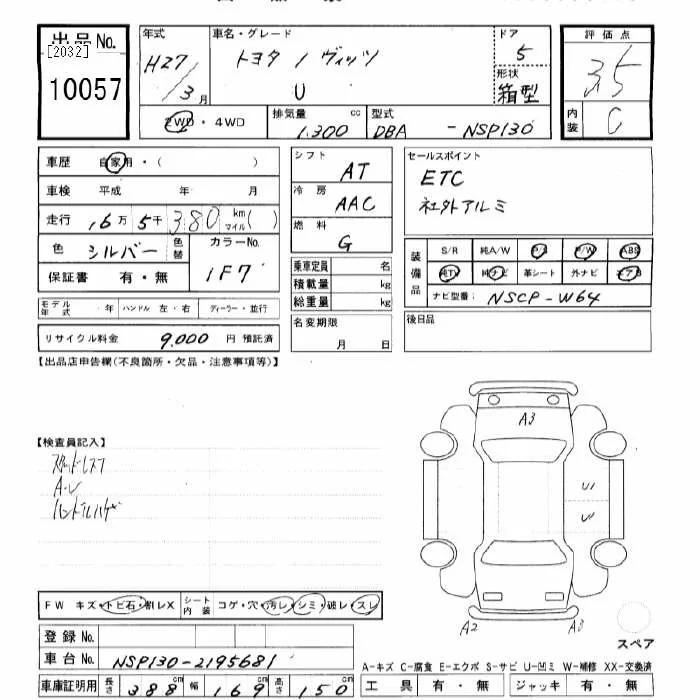 出品No.
[2032]
10057
年式
H27/3月
車名・グレード
トヨタ / ヴィッツ
U
ドア
5
形状
箱型
評価点
3.5
内装
C
2WD・4WD
排気量 1,300 cc
型式 DBA - NSP130
車歴 自家用・( )
車検 平成 年 月
走行 1.6万 5千 380 km マイル( )
色 シルバー 色替
カラーNo. 1F7
保証書 有・無
モデル年式 ・ 年 ハンドル 左・右 ディーラー・並行
リサイクル料金 9,000 円 預託済
シフト AT
冷房 AAC
燃料 G
乗車定員 名
積載量 kg
総重量 kg
名変期限
月 日
セールスポイント
ETC
社外アルミ
装備品
S/R 純A/W P/S P/W ABS
純TV 純ナビ 革シート 外ナビ エアB
ナビ型番: NSCP-W64
後日品
【出品店申告欄(不良箇所・欠品・注意事項等)】
【検査員記入】
A-U
ハンドルハゲ
A3
U1
A2
A3
スペア
FW キズ・トビ石・割レX
シート内装 コゲ・穴・汚レ・シミ・破レ・スレ
登録No.
車台No. NSP130-2195681
車庫証明用 長さ 388 cm 幅 169 cm 高さ 150 cm
A-キズ C-腐食 E-エクボ S-サビ U-凹ミ W-補修 XX-交換済
工具 有・無 ジャッキ 有・無